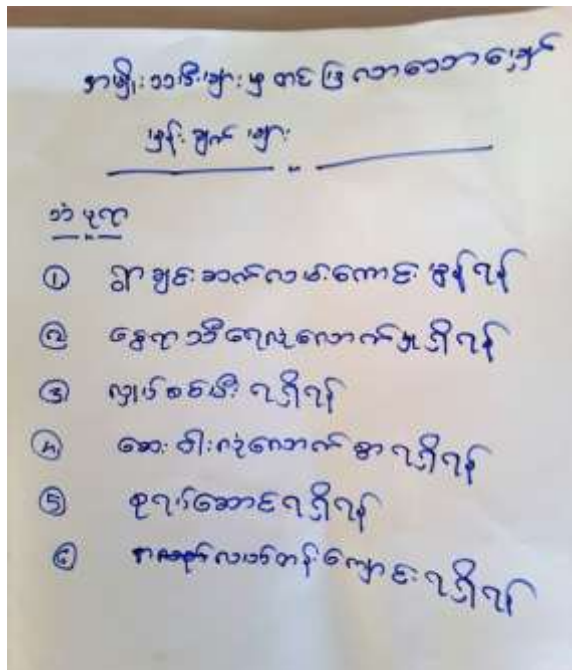 အမျိုးသမီးများမှ တင်ပြလာသော
မှန်းချက်များ
သံပုရာ
၁ ရွာချင်းဆက်လမ်းကောင်းမွန်ရန်
၂ နွေရာသီရေလုံလောက်မှုရှိရန်
၃ လျှပ်စစ်မီး ရရှိရန်
၄ ဆေးဝါးလုံလောက်စွာရရှိရန်
၅ စုရပ်ဆောင်ရရှိရန်
၆ လယ်တန်းကျောင်းရရှိရန်